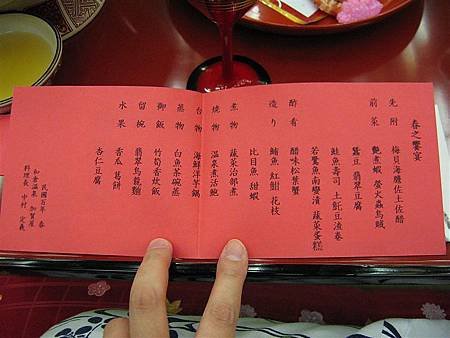 春之饗宴
先附 梅貝海膽佐土佐醋
前菜 艷煮蝦 螢火蟲烏賊
蠶豆 翡翠豆腐
鮭魚壽司 土魠豆渣卷
若鷺魚南蠻漬 蔬菜蛋糕
酢肴 醋味松葉蟹
造り 鮪魚 紅魽 花枝
比目魚 甜蝦
煮物 蔬菜治部煮
燒物 溫泉煮活鮑
台物 海鮮洋芋鍋
蒸物 白魚茶碗蒸
御飯 竹筍香炊飯
留椀 翡翠烏龍麵
水果 香瓜 葛餅
杏仁豆腐
民國百年 春
和倉溫泉 加賀屋
料理長 中村 定義